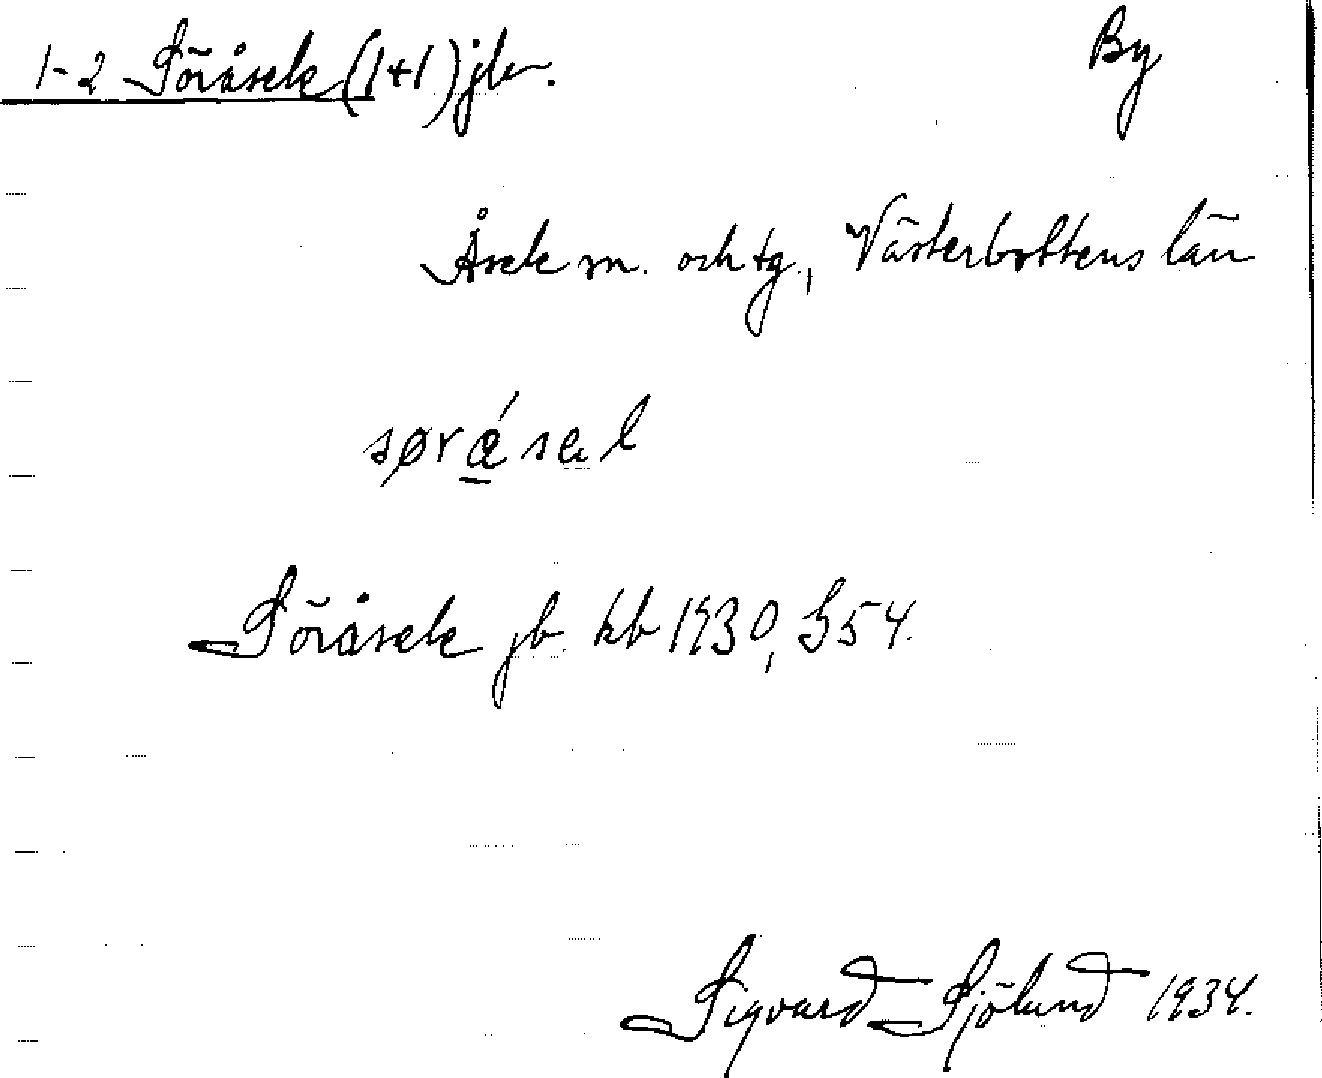 1-2 Söråsele (1+1) jbr.
By
Åsele sn. och tg., Västerbottens län
Söråsele jb kb 1930, S 54.
Sigvard Sjölund 1934.